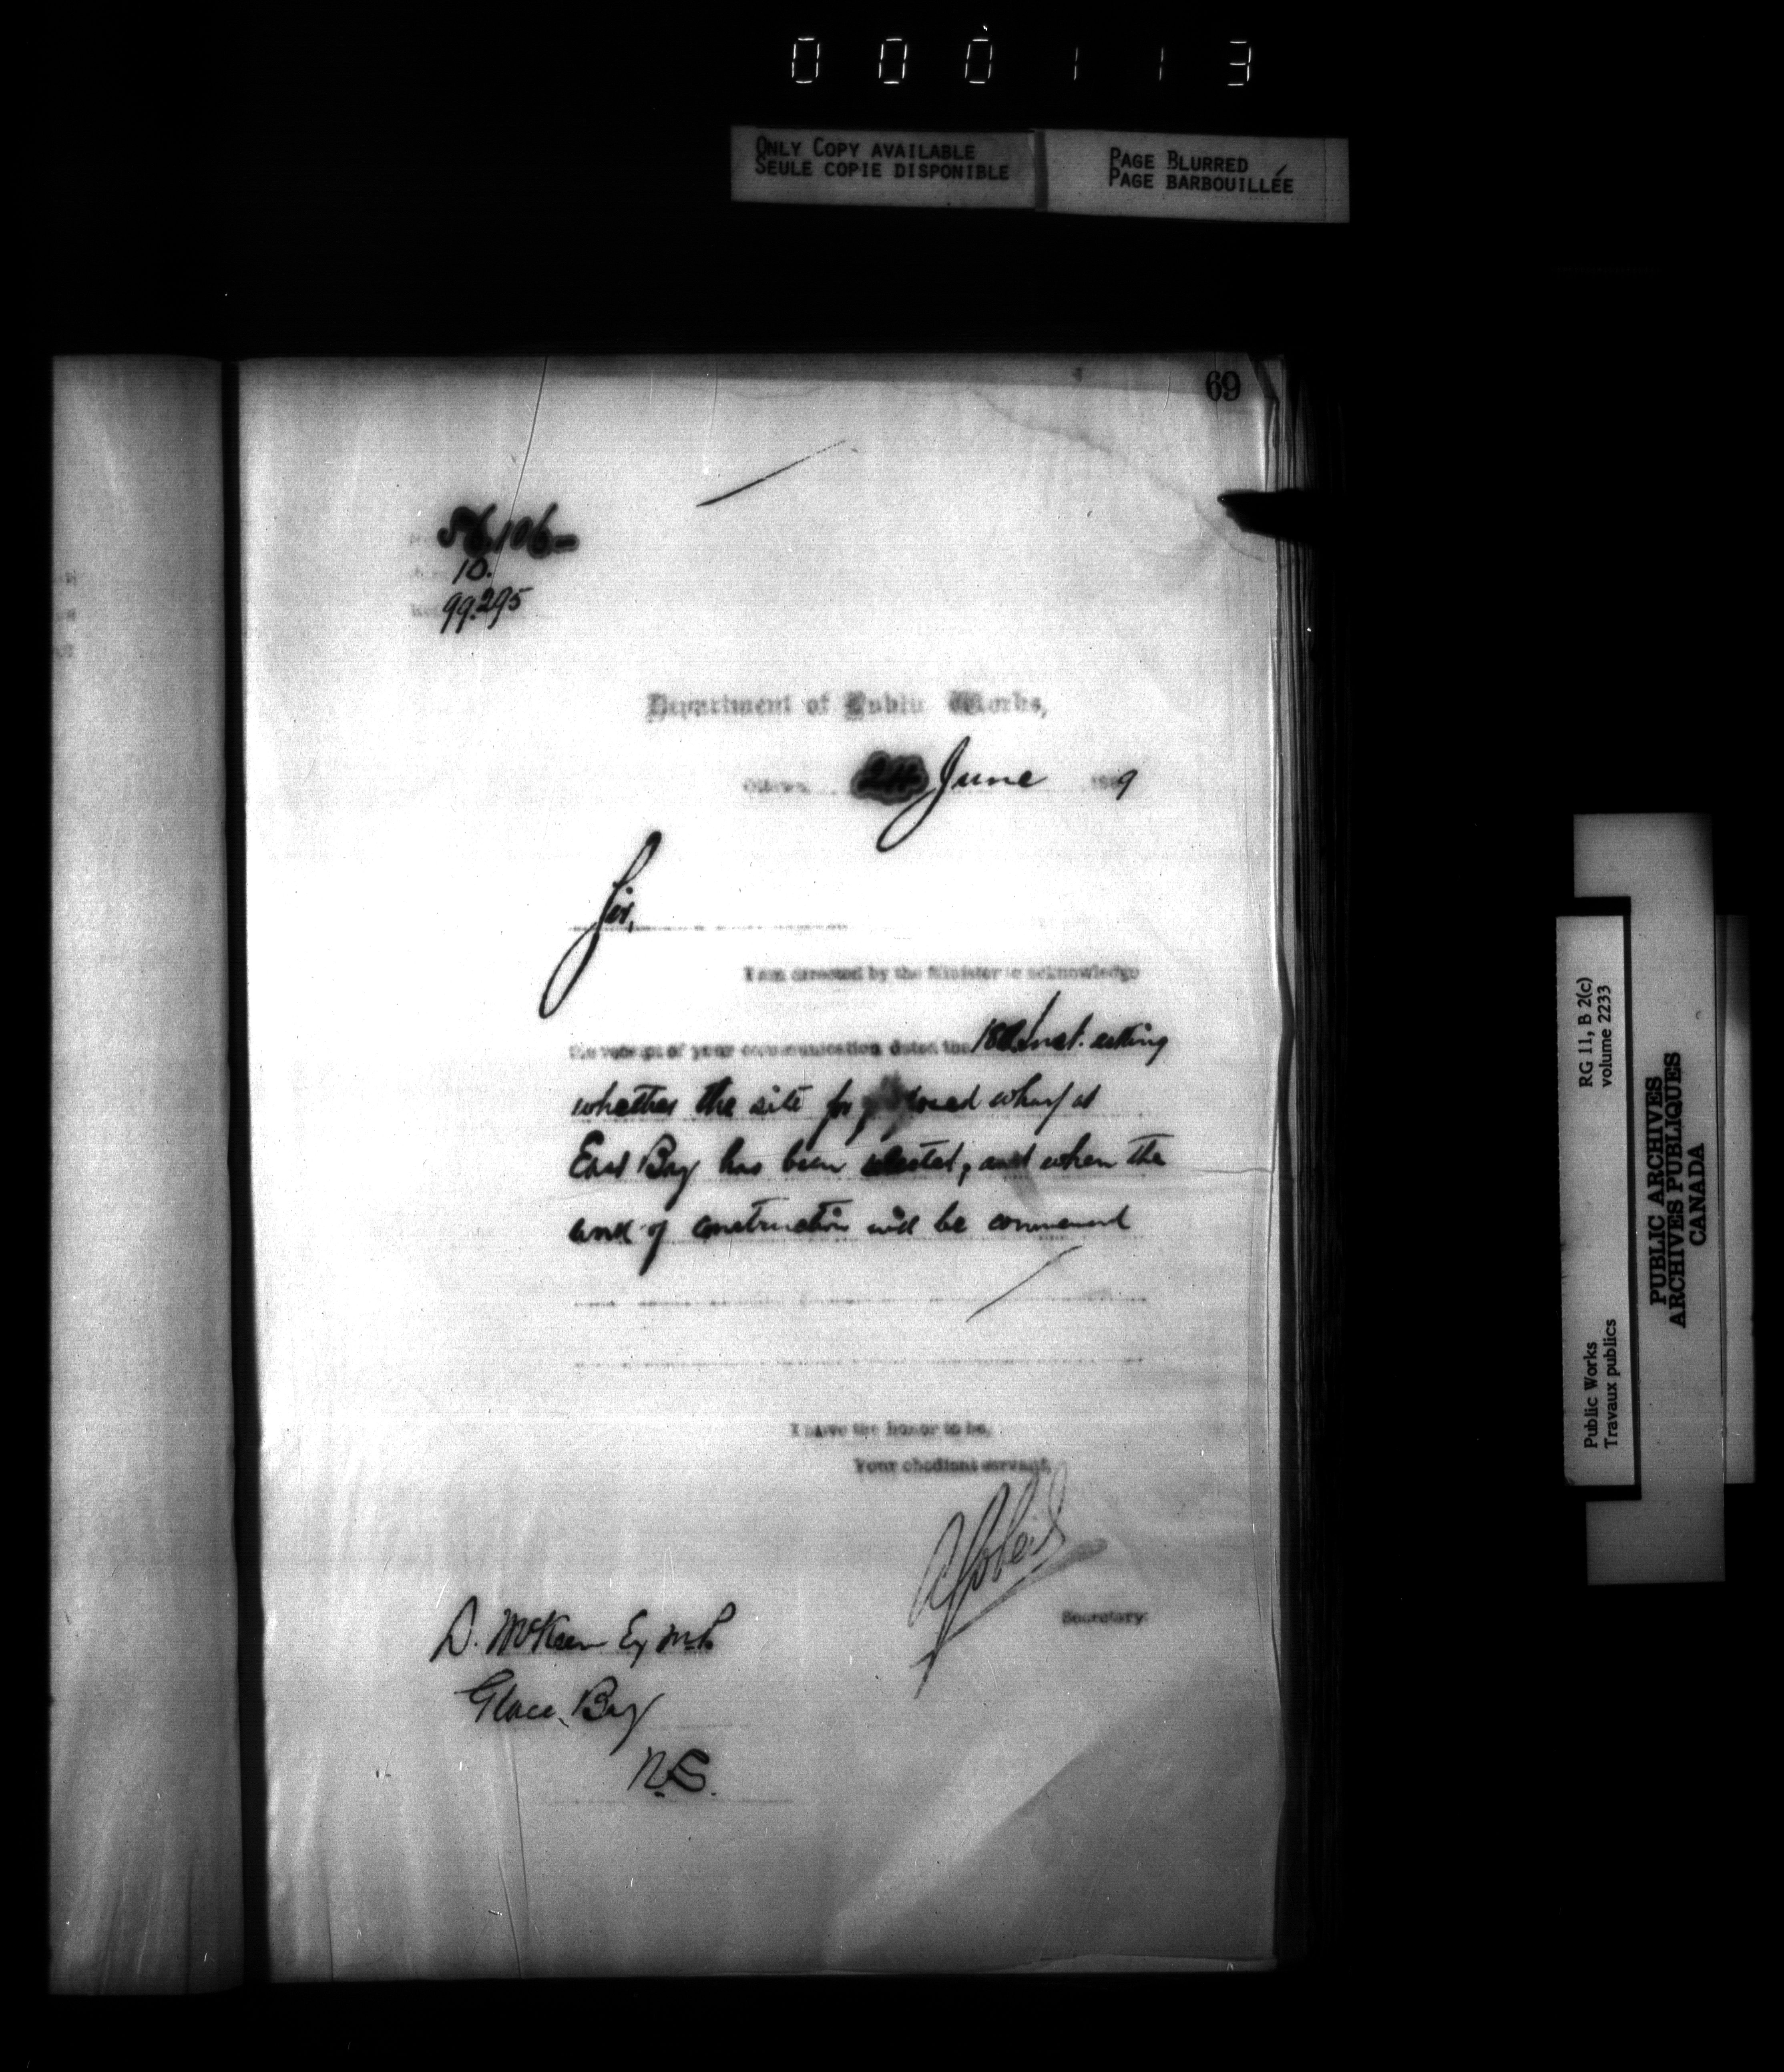 000113
ONLY COPY AVAILABLE
SEULE COPIE DISPONIBLE
PAGE BLURRED
PAGE BARBOUILLÉE
69
56,106-
10.
99.295
Department of Public Works,
Ottawa, 24 June 1889
Sir,
I am directed by the Minister to acknowledge
the receipt of your communication dated the 18th inst. asking
whether the site for proposed wharf at
East Bay has been selected, and when the
work of construction will be commenced
I have the honor to be,
Your obedient servant,
Secretary.
D. McKeen Esq M.P.
Glace Bay
N.S.
RG 11, B 2(c)
volume 2233
Public Works
Travaux publics
PUBLIC ARCHIVES
ARCHIVES PUBLIQUES
CANADA